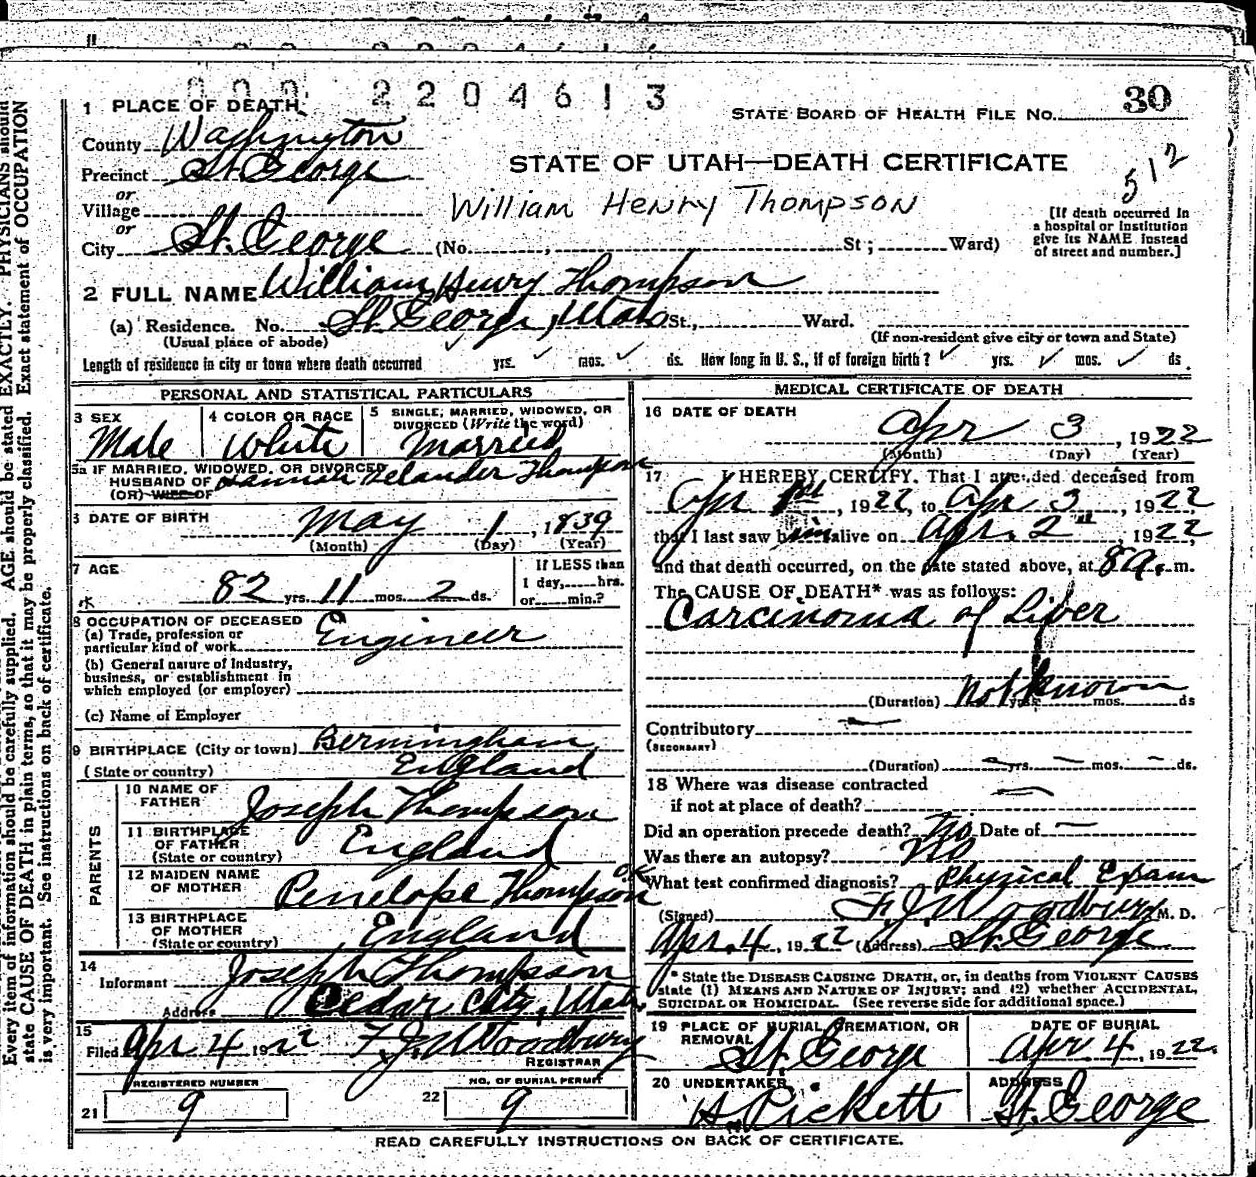 009 2204613
1 PLACE OF DEATH
STATE BOARD OF HEALTH FILE NO. 30
County Washington
Precinct St. George
STATE OF UTAH—DEATH CERTIFICATE
512
or
Village
William Henry Thompson
or
City St. George (No. , St ; Ward)
[If death occurred in
a hospital or institution
give its NAME instead
of street and number.]
2 FULL NAME William Henry Thompson
(a) Residence. No. St. George, Utah St., Ward.
(Usual place of abode) (If non-resident give city or town and State)
Length of residence in city or town where death occurred yrs. mos. ds. How long in U. S., if of foreign birth? yrs. mos. ds.
PERSONAL AND STATISTICAL PARTICULARS
3 SEX Male
4 COLOR OR RACE White
5 SINGLE, MARRIED, WIDOWED, OR
DIVORCED (Write the word)
Married
5a IF MARRIED, WIDOWED, OR DIVORCED
HUSBAND OF Thompson
(OR) WIFE OF
6 DATE OF BIRTH May 1, 1839
(Month) (Day) (Year)
7 AGE 82 yrs. 11 mos. 2 ds.
If LESS than
1 day, hrs.
or min.?
8 OCCUPATION OF DECEASED
(a) Trade, profession or
particular kind of work Engineer
(b) General nature of Industry,
business, or establishment in
which employed (or employer)
(c) Name of Employer
9 BIRTHPLACE (City or town) Bermingham
(State or country) England
PARENTS
10 NAME OF
FATHER Joseph Thompson
11 BIRTHPLACE
OF FATHER England
(State or country)
12 MAIDEN NAME
OF MOTHER Penelope Thompson O.K.
13 BIRTHPLACE
OF MOTHER England
(State or country)
14
Informant Joseph Thompson
Address Cedar City, Utah
15
Filed Apr 4 1922 F. J. Woodbury
REGISTRAR
REGISTERED NUMBER
21 9
NO. OF BURIAL PERMIT
22 9
MEDICAL CERTIFICATE OF DEATH
16 DATE OF DEATH
Apr 3, 1922
(Month) (Day) (Year)
17 I HEREBY CERTIFY. That I attended deceased from
Apr 1st, 1922, to Apr 3, 1922
that I last saw him alive on Apr. 2", 1922,
and that death occurred, on the date stated above, at 8 a. m.
The CAUSE OF DEATH* was as follows:
Carcinoma of Liver
(Duration) Not known yrs. mos. ds
Contributory —
(SECONDARY)
(Duration) — yrs. — mos. — ds.
18 Where was disease contracted
if not at place of death? —
Did an operation precede death? No Date of —
Was there an autopsy? No
What test confirmed diagnosis? Physical Exam
(Signed) F. J. Woodbury M. D.
Apr. 4, 1922 (Address) St. George
* State the DISEASE CAUSING DEATH, or, in deaths from VIOLENT CAUSES
state (1) MEANS AND NATURE OF INJURY; and (2) whether ACCIDENTAL,
SUICIDAL OR HOMICIDAL. (See reverse side for additional space.)
19 PLACE OF BURIAL, CREMATION, OR
REMOVAL St. George
DATE OF BURIAL
Apr. 4, 1922.
20 UNDERTAKER Pickett
ADDRESS St. George
READ CAREFULLY INSTRUCTIONS ON BACK OF CERTIFICATE.
Every item of information should be carefully supplied. AGE should be stated EXACTLY. PHYSICIANS should
state CAUSE OF DEATH in plain terms, so that it may be properly classified. Exact statement of OCCUPATION
is very important. See instructions on back of certificate.